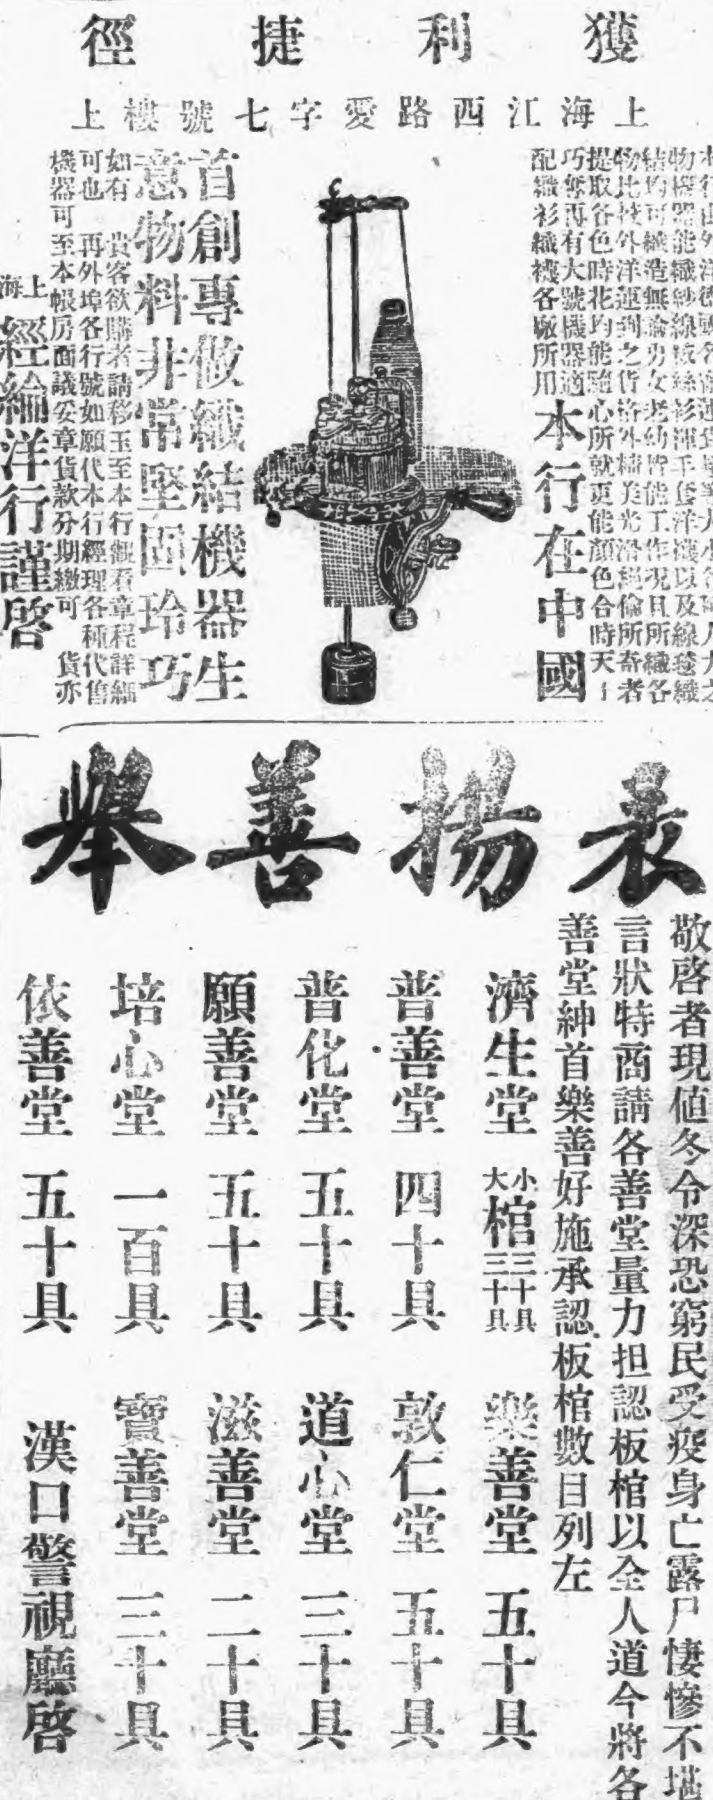 獲利捷徑
上海江西路愛字七號樓上
物機器能織紗線絨絲衫渾手套洋襪以及線毯織
結均可織造無論男女老幼皆能工作況且所織各
物比較外洋運到之貨格外精美光滑絕倫所寄者
提取各色時花均能隨心所就更能顏色合時天工
巧奪再有大號機器適
配織衫織襪各廠所用
本行在中國
首創專做織結機器生
意物料非常堅固玲巧
如有貴客欲購者請移玉至本行觀看章程詳細
可也再外埠各行號如願代本行經理各種代售
機器可至本帳房面議妥章貨款分期繳可貨亦
上海經綸洋行謹啓
表揚善舉
敬啓者現値冬令深恐窮民受疫身亡露尸悽慘不堪
言狀特商請各善堂量力担認板棺以全人道今將各
善堂紳首樂善好施承認板棺數目列左
濟生堂 小大棺三十具三十具 樂善堂 五十具
普善堂 四十具 敦仁堂 五十具
普化堂 五十具 道心堂 三十具
願善堂 五十具 滋善堂 二十具
培心堂 一百具 寶善堂 三十具
依善堂 五十具 漢口警視廳啓